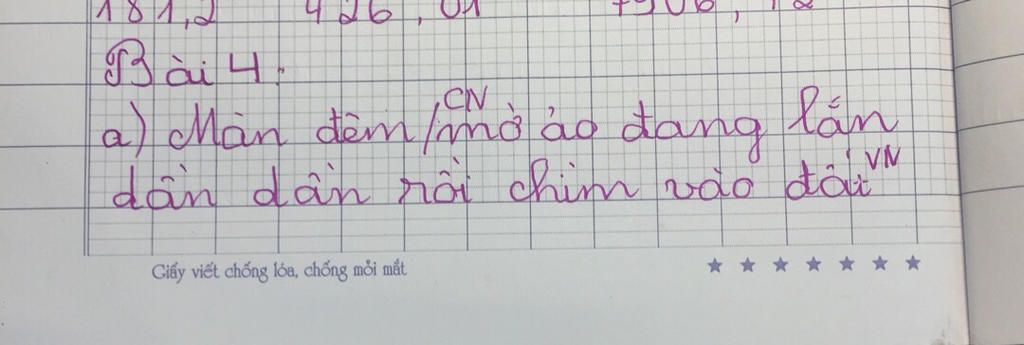 181,2 426,01
Bài 4.
a) Màn đêm / mờ ảo đang lắn CN
dần dần rồi chìm vào đất VN
Giấy viết chống lóa, chống mỏi mắt